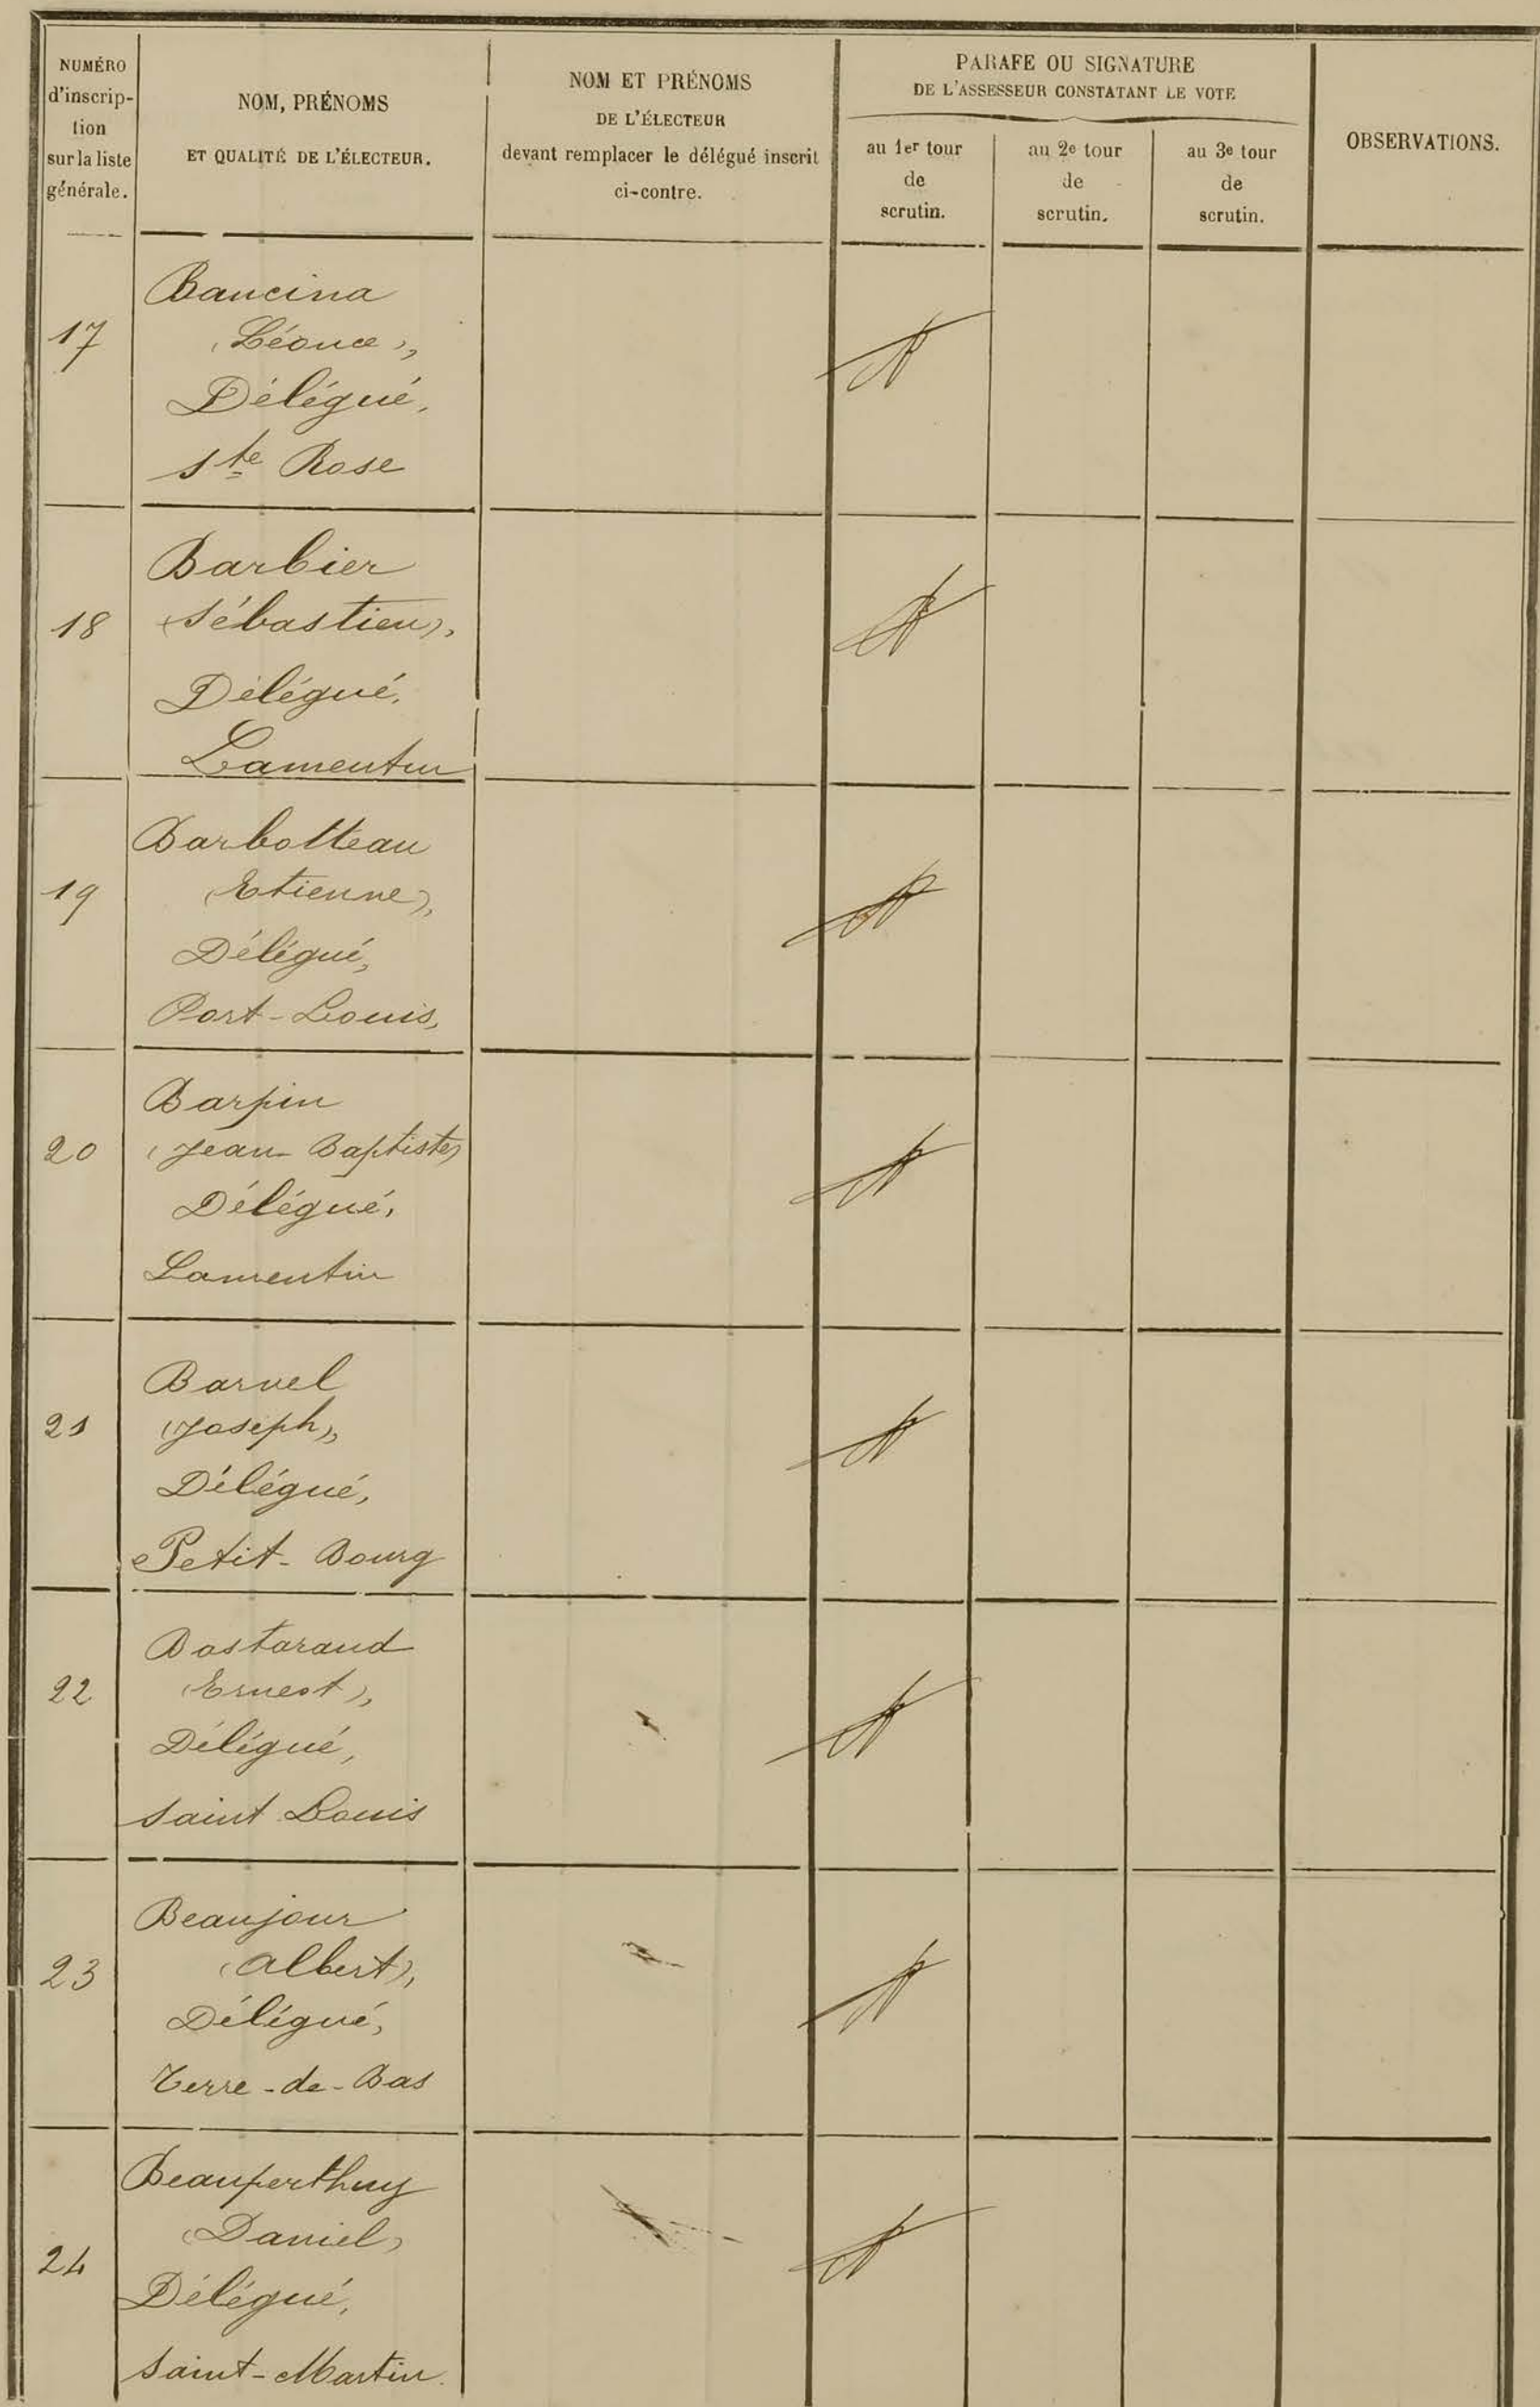 NUMÉRO
d'inscrip-
tion
sur la liste
générale.
NOM, PRÉNOMS
ET QUALITÉ DE L'ÉLECTEUR.
NOM ET PRÉNOMS
DE L'ÉLECTEUR
devant remplacer le délégué inscrit
ci-contre.
PARAFE OU SIGNATURE
DE L'ASSESSEUR CONSTATANT LE VOTE
au 1er tour
de
scrutin.
au 2e tour
de
scrutin.
au 3e tour
de
scrutin.
OBSERVATIONS.
17
Baucina
(Léonce),
Délégué,
Ste Rose
18
Barbier
(Sébastien),
Délégué,
Lamentin
19
Barbotteau
(Etienne),
Délégué,
Port-Louis,
20
Barpin
(Jean-Baptiste)
Délégué,
Lamentin
21
Barvel
(Joseph),
Délégué,
Petit-Bourg
22
Bastaraud
(Ernest),
Délégué,
Saint Louis
23
Beaujour
(Albert),
Délégué,
Terre-de-Bas
24
Beauperthuy
(Daniel)
Délégué,
Saint-Martin.